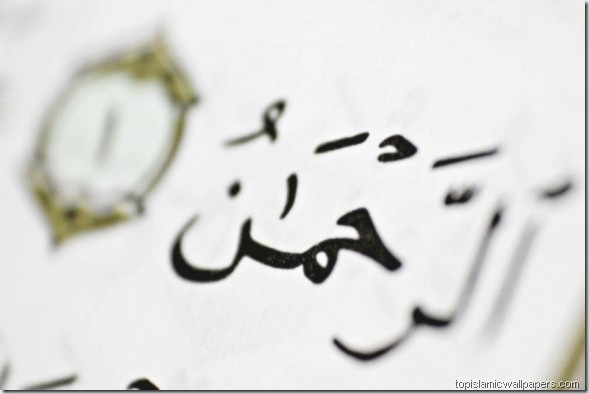 اَلرَّحْمَٰنُ ١
topislamicwallpapers.com